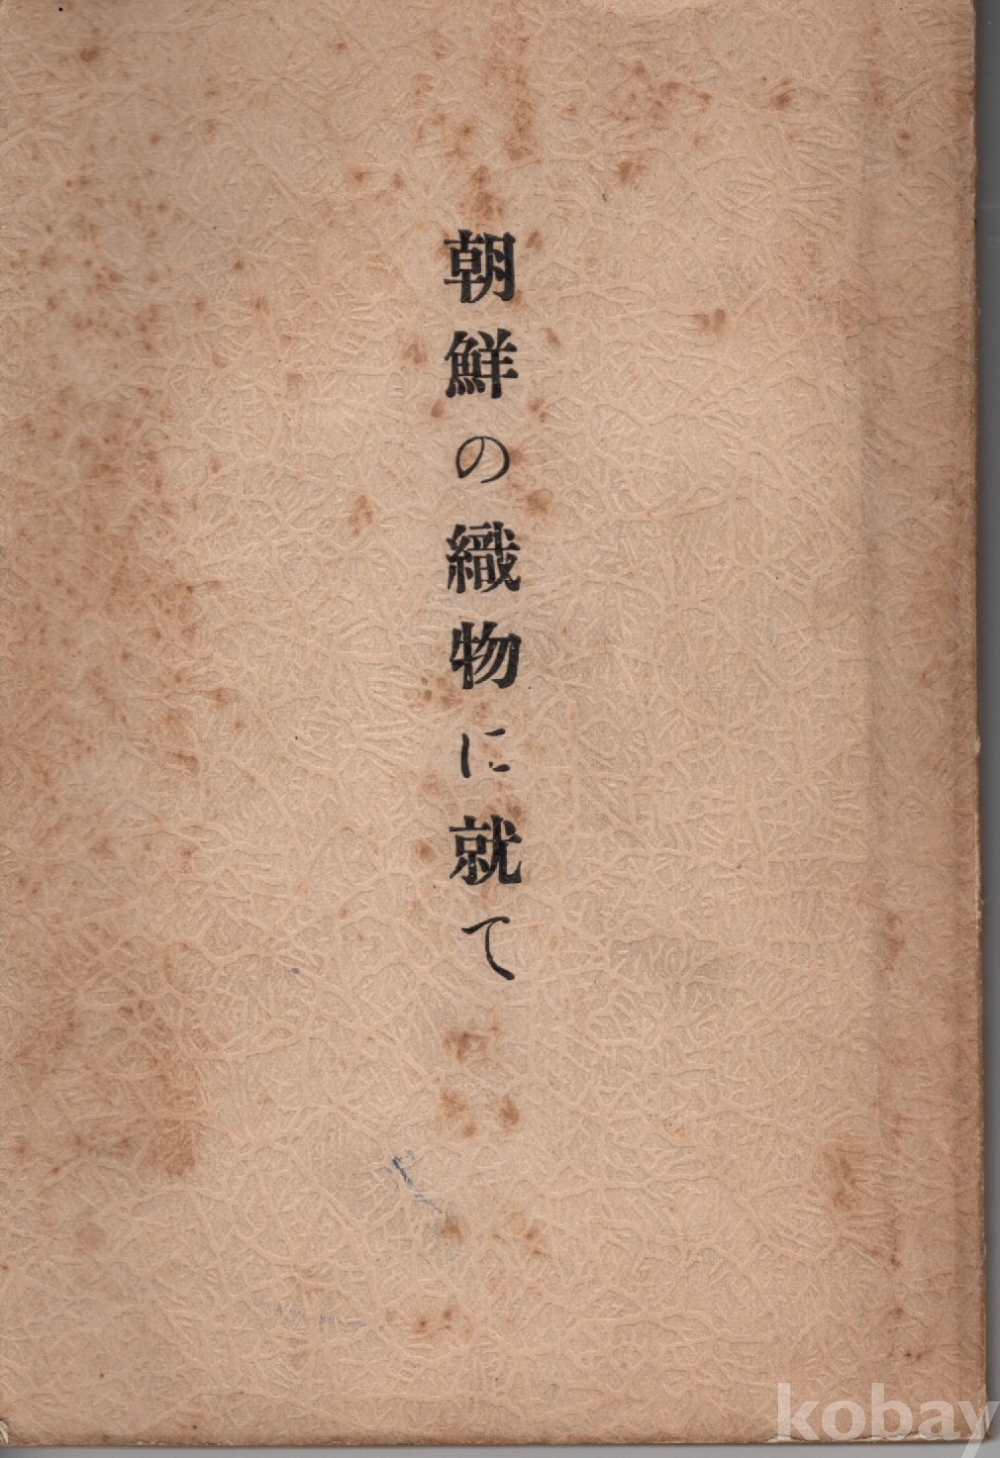 朝鮮の織物に就て
kobay